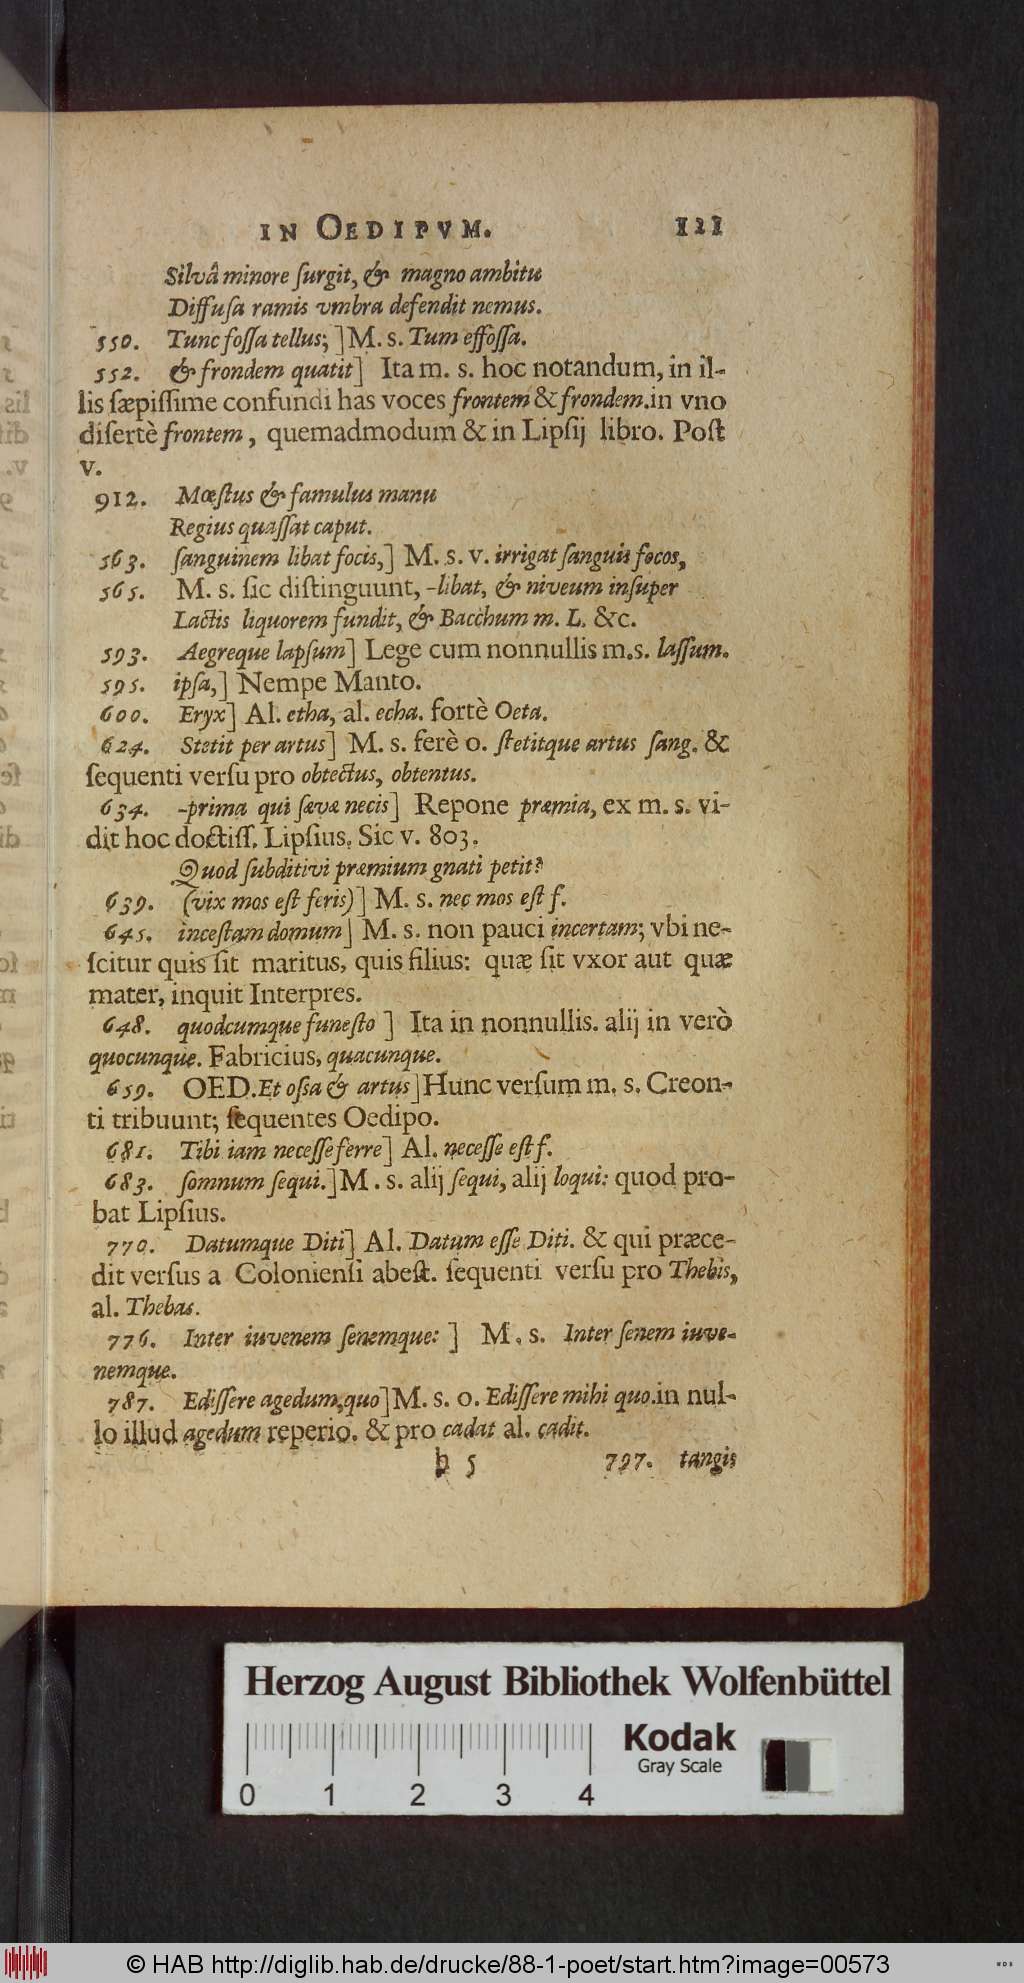 IN OEDIPVM. 121
Silvâ minore ſurgit, & magno ambitu
Diffuſa ramis vmbra defendit nemus.
550. Tunc foſſa tellus; ] M. s. Tum effoſſa.
552. & frondem quatit] Ita m. s. hoc notandum, in il-
lis ſæpiſſime confundi has voces frontem & frondem. in vno
diſertè frontem, quemadmodum & in Lipſij libro. Poſt
v.
912. Mœſtus & famulus manu
Regius quaſſat caput.
563. ſanguinem libat focis,] M. s. v. irrigat ſanguis focos,
565. M. s. ſic diſtinguunt, -libat, & niveum inſuper
Lactis liquorem fundit, & Bacchum m. L. &c.
593. Aegreque lapſum] Lege cum nonnullis m.s. laſſum.
595. ipſa,] Nempe Manto.
600. Eryx] Al. etha, al. echa. fortè Oeta.
624. Stetit per artus] M. s. ferè o. ſtetitque artus ſang. &
ſequenti verſu pro obtectus, obtentus.
634. -prima qui ſævæ necis] Repone præmia, ex m. s. vi-
dit hoc doctiſſ. Lipſius. Sic v. 803.
Quod ſubditivi præmium gnati petit?
639. (vix mos eſt feris)] M. s. nec mos eſt f.
645. inceſtam domum] M. s. non pauci incertam; vbi ne-
ſcitur quis ſit maritus, quis filius: quæ ſit vxor aut quæ
mater, inquit Interpres.
648. quodcumque funeſto ] Ita in nonnullis. alij in verò
quocunque. Fabricius, quacunque.
659. OED. Et oſſa & artus] Hunc verſum m. s. Creon-
ti tribuunt; ſequentes Oedipo.
681. Tibi iam neceſſe ferre] Al. neceſſe eſt f.
683. ſomnum ſequi.] M. s. alij ſequi, alij loqui: quod pro-
bat Lipſius.
770. Datumque Diti] Al. Datum eſſe Diti. & qui præce-
dit verſus a Colonienſi abeſt. ſequenti verſu pro Thebis,
al. Thebas.
776. Inter iuvenem ſenemque: ] M. s. Inter ſenem iuve-
nemque.
787. Ediſſere agedum, quo] M. s. o. Ediſſere mihi quo. in nul-
lo illud agedum reperio. & pro cadat al. cadit.
h 5 797. tangis
Herzog August Bibliothek Wolfenbüttel
Kodak
Gray Scale
0 1 2 3 4
© HAB http://diglib.hab.de/drucke/88-1-poet/start.htm?image=00573